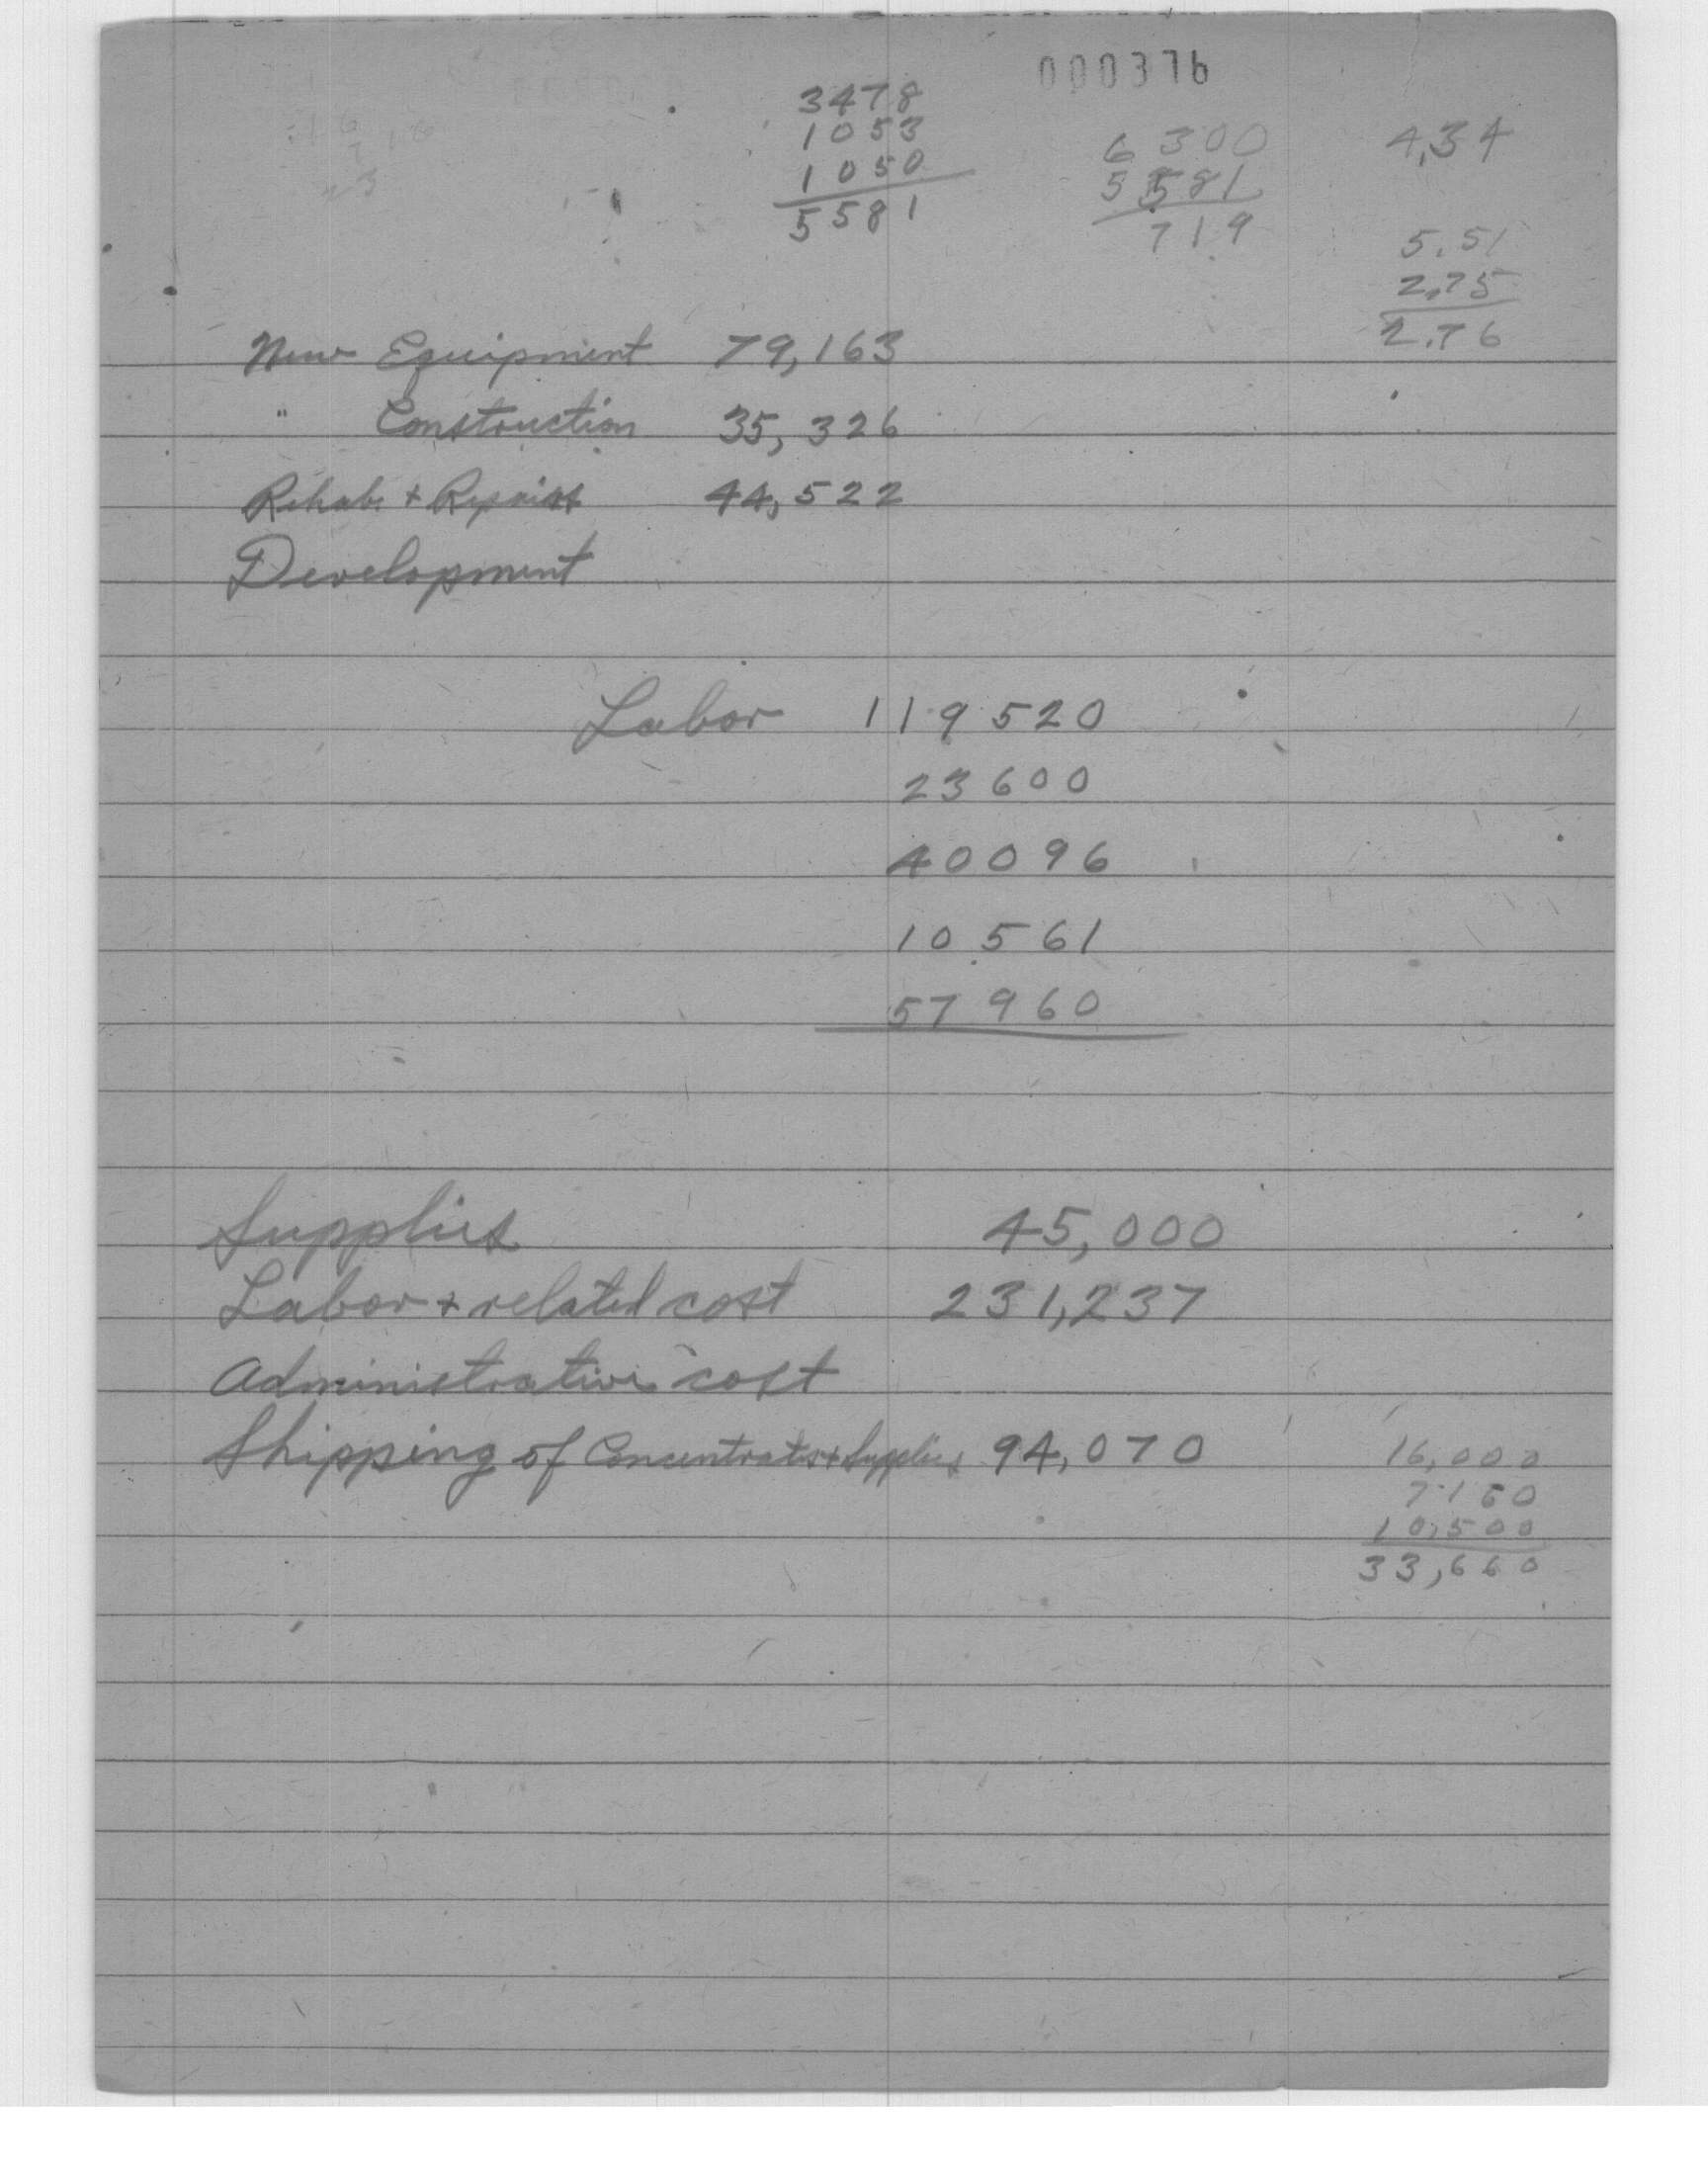 000376
3478
1053
1050
5581
6300
5581
719
4,34
5.51
2.75
2.76
New Equipment 79,163
" Construction 35,326
Rehab. + Repairs 44,522
Development
Labor 119520
23600
40096
10561
57960
Supplies 45,000
Labor + related cost 231,237
Administrative cost
Shipping of Concentrates + Supplies 94,070
16,000
7160
10,500
33,660